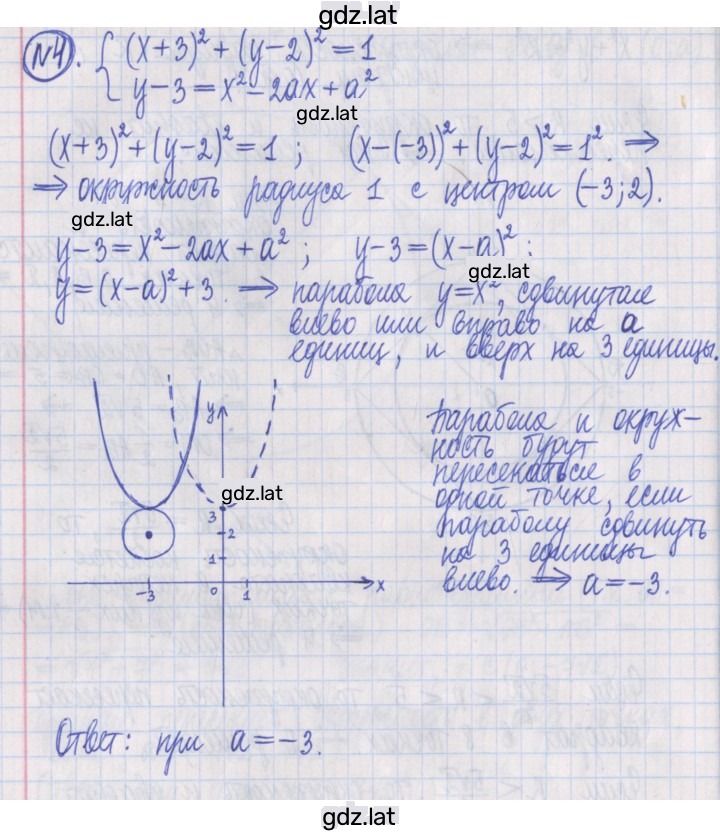 gdz.lat
№4. { (x+3)² + (y-2)² = 1
y-3 = x² - 2ax + a²
gdz.lat
(x+3)² + (y-2)² = 1 ; (x-(-3))² + (y-2)² = 1². ⇒
⇒ окружность радиуса 1 с центром (-3; 2).
gdz.lat
y-3 = x² - 2ax + a² ; y-3 = (x-a)² ;
gdz.lat
y = (x-a)² + 3. ⇒ парабола y = x², сдвинутая
влево или вправо на a
единиц, и вверх на 3 единицы.
y
Парабола и окруж-
ность будут
пересекаться в
одной точке, если
параболу сдвинуть
на 3 единицы
влево. ⇒ a = -3.
gdz.lat
3
2
1
-3 0 1 x
Ответ: при a = -3.
gdz.lat